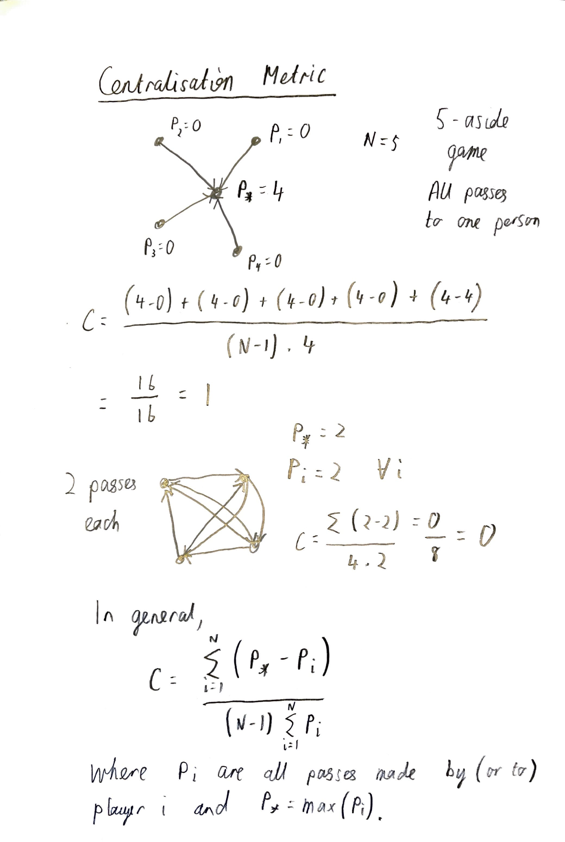 Centralisation Metric
P₂=0
P₁=0
N=5
5-aside
game
All passes
to one person
P* = 4
P₃=0
P₄=0
C = ((4-0) + (4-0) + (4-0) + (4-0) + (4-4)) / ((N-1) . 4)
= 16/16 = 1
2 passes
each
P* = 2
Pᵢ = 2 ∀i
C = Σ(2-2) / 4.2 = 0/8 = 0
In general,
C = Σᵢ₌₁ᴺ (P* - Pᵢ) / ((N-1) Σᵢ₌₁ᴺ Pᵢ)
where Pᵢ are all passes made by (or to)
player i and P* = max(Pᵢ).